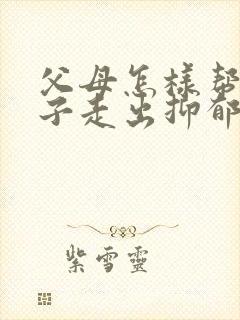 父母怎樣幫
子走出抑郁
紫雪靈